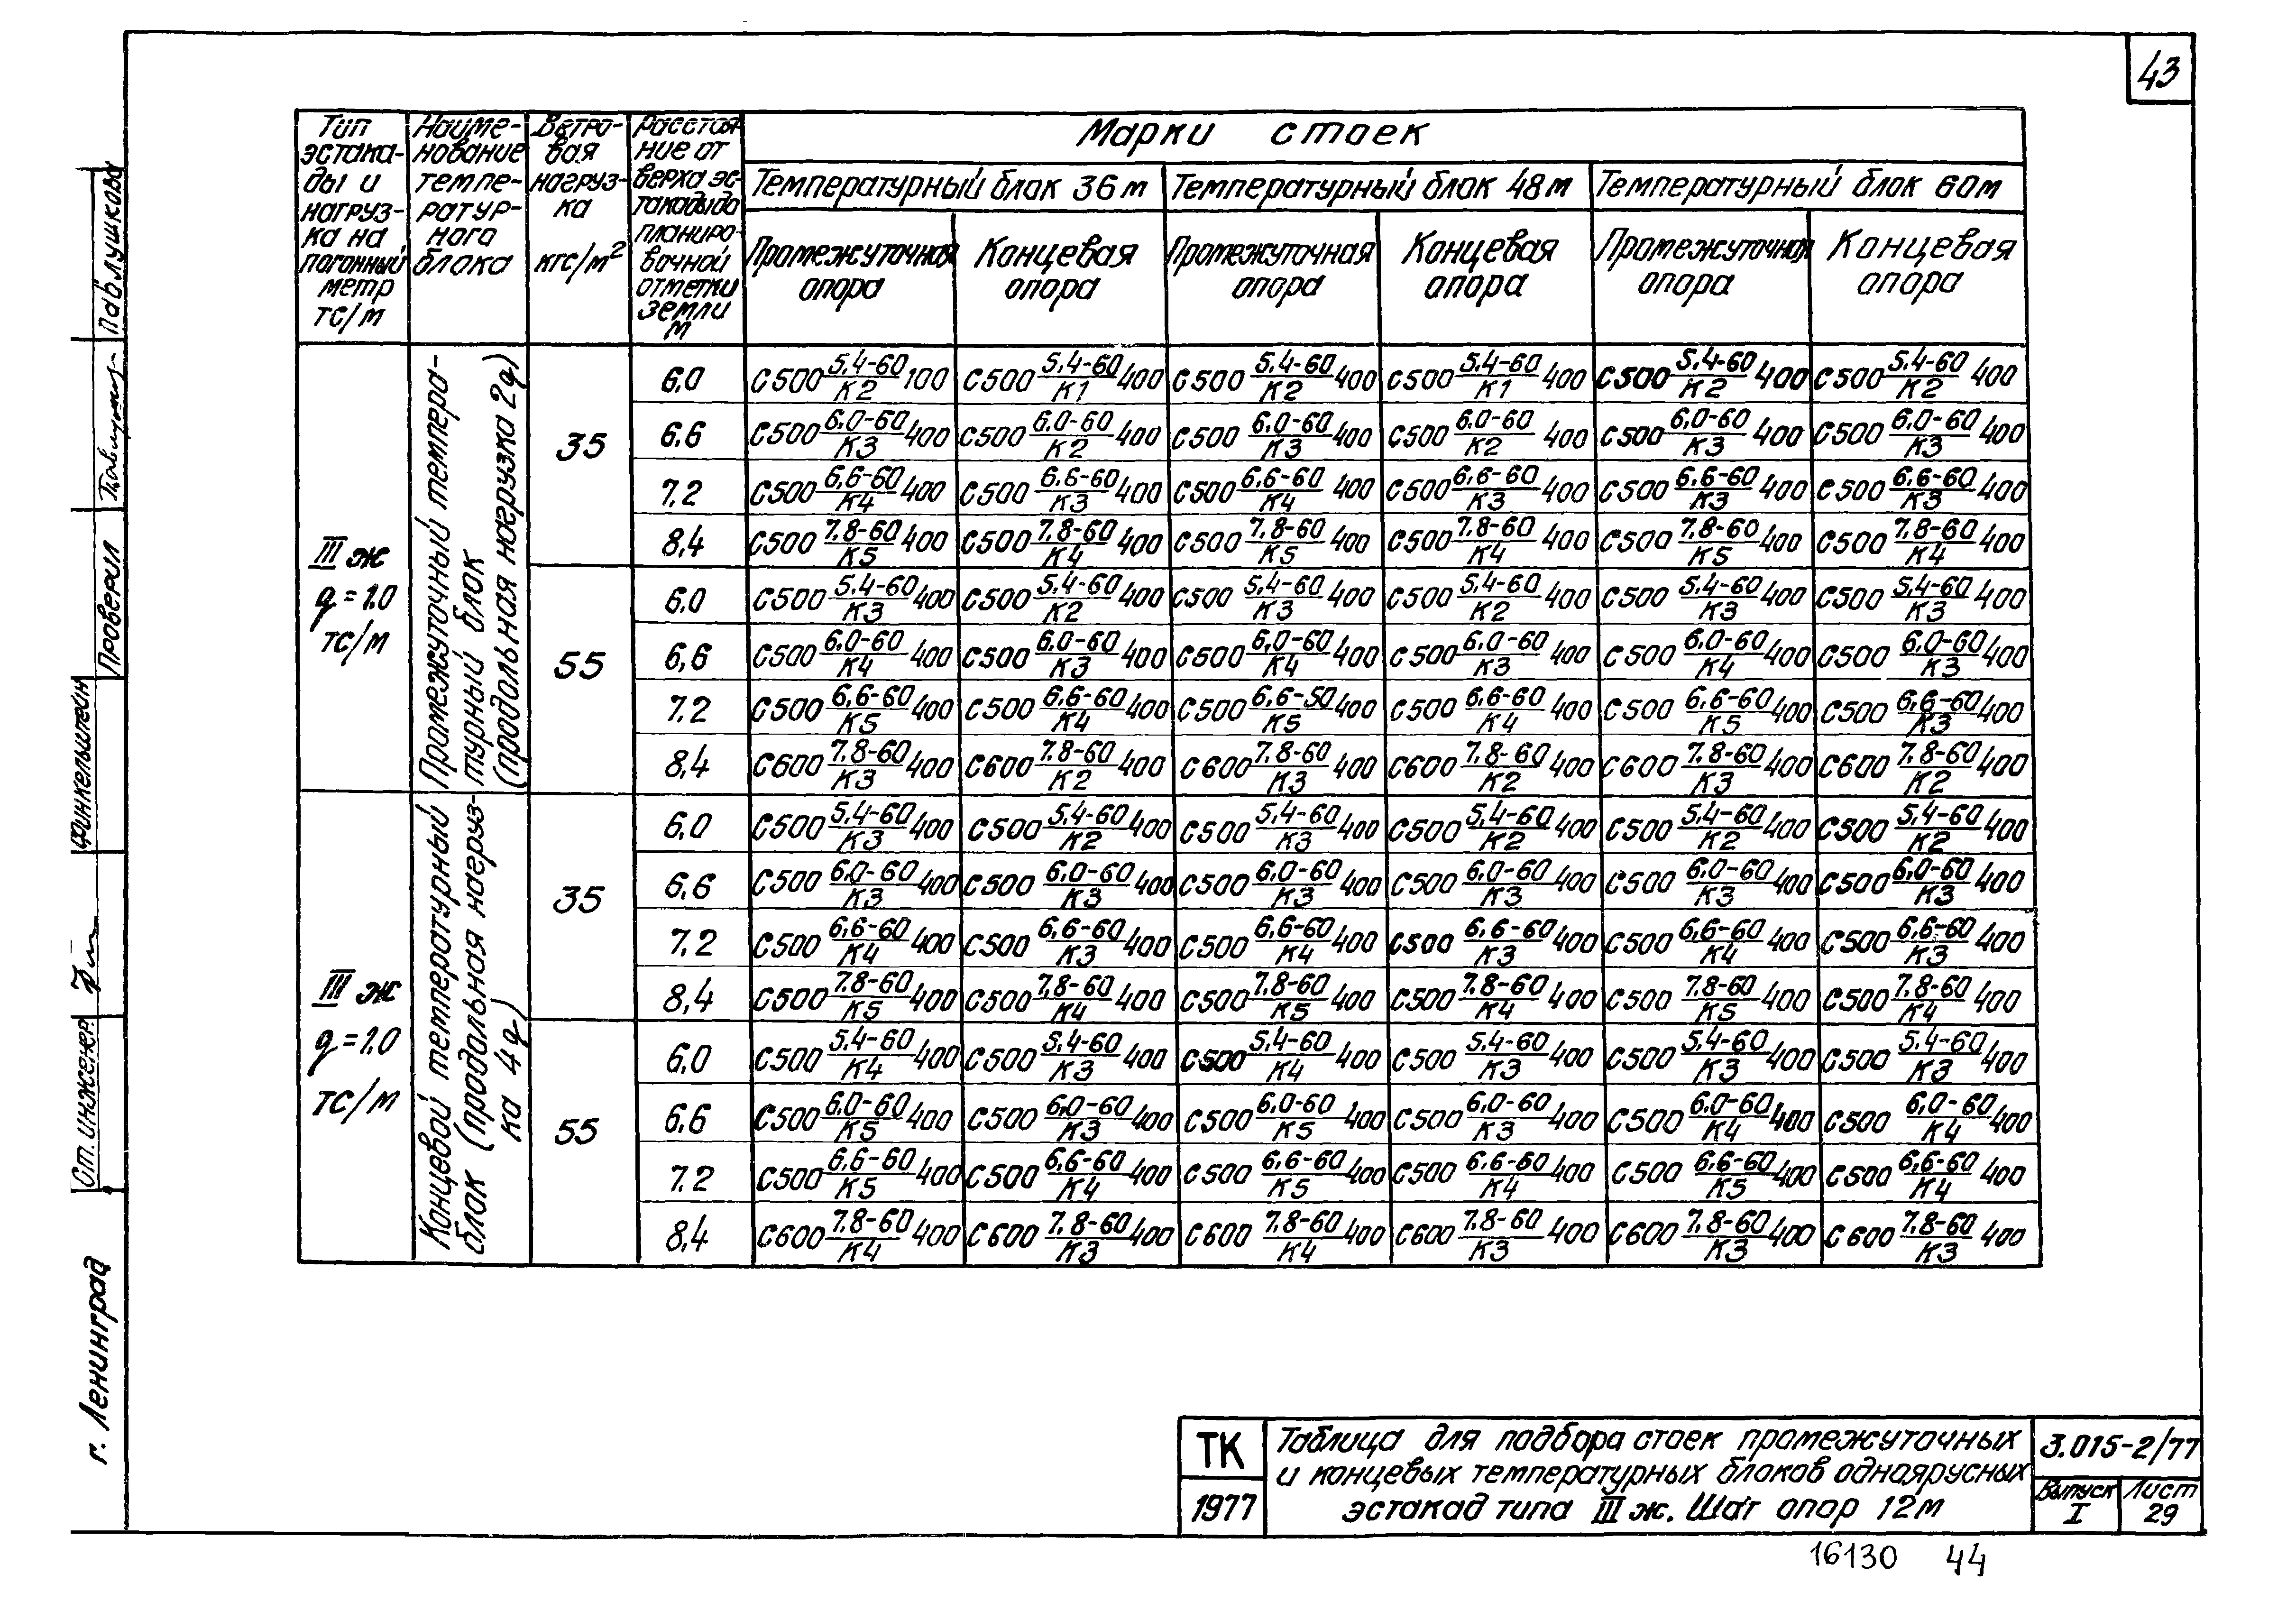 43
Тип эстака-ды и нагруз-ка на погонный метр тс/м
Наиме-нование темпе-ратур-ного блока
Ветро-вая нагруз-ка кгс/м²
Расстоя-ние от верха эс-такады до планиро-вочной отметки земли м
Марки стоек
Температурный блок 36м Температурный блок 48м Температурный блок 60м
Промежуточная опора Концевая опора Промежуточная опора Концевая опора Промежуточная опора Концевая опора
III ж q=1.0 тс/м
Промежуточный темпера-турный блок (продольная нагрузка 2q)
35
6.0 С500 5.4-60/К2 100 С500 5.4-60/К1 400 С500 5.4-60/К2 400 С500 5.4-60/К1 400 С500 5.4-60/К2 400 С500 5.4-60/К2 400
6,6 С500 6,0-60/К3 400 С500 6.0-60/К2 400 С500 6.0-60/К3 400 С500 6.0-60/К2 400 С500 6,0-60/К3 400 С500 6.0-60/К3 400
7,2 С500 6,6-60/К4 400 С500 6,6-60/К3 400 С500 6,6-60/К4 400 С500 6,6-60/К3 400 С500 6,6-60/К3 400 С500 6,6-60/К3 400
8,4 С500 7,8-60/К5 400 С500 7,8-60/К4 400 С500 7,8-60/К5 400 С500 7,8-60/К4 400 С500 7.8-60/К5 400 С500 7.8-60/К4 400
55
6,0 С500 5.4-60/К3 400 С500 5,4-60/К2 400 С500 5,4-60/К3 400 С500 5,4-60/К2 400 С500 5,4-60/К3 400 С500 5,4-60/К3 400
6,6 С500 6.0-60/К4 400 С500 6,0-60/К3 400 С500 6,0-60/К4 400 С500 6.0-60/К3 400 С500 6.0-60/К4 400 С500 6.0-60/К3 400
7,2 С500 6,6-60/К5 400 С500 6,6-60/К4 400 С500 6,6-50/К5 400 С500 6,6-60/К4 400 С500 6,6-60/К5 400 С500 6,6-60/К3 400
8,4 С600 7.8-60/К3 400 С600 7,8-60/К2 400 С600 7.8-60/К3 400 С600 7.8-60/К2 400 С600 7.8-60/К3 400 С600 7,8-60/К2 400
III ж q=1.0 тс/м
Концевой температурный блок (продольная нагруз-ка 4q)
35
6,0 С500 5,4-60/К3 400 С500 5,4-60/К2 400 С500 5,4-60/К3 400 С500 5,4-60/К2 400 С500 5,4-60/К2 400 С500 5,4-60/К2 400
6,6 С500 6.0-60/К3 400 С500 6,0-60/К3 400 С500 6.0-60/К3 400 С500 6,0-60/К3 400 С500 6,0-60/К3 400 С500 6,0-60/К3 400
7,2 С500 6,6-60/К4 400 С500 6,6-60/К3 400 С500 6,6-60/К4 400 С500 6,6-60/К3 400 С500 6,6-60/К4 400 С500 6,6-60/К3 400
8,4 С500 7.8-60/К5 400 С500 7,8-60/К4 400 С500 7.8-60/К5 400 С500 7,8-60/К4 400 С500 7.8-60/К5 400 С500 7,8-60/К4 400
55
6,0 С500 5.4-60/К4 400 С500 5,4-60/К3 400 С500 5.4-60/К4 400 С500 5.4-60/К3 400 С500 5,4-60/К3 400 С500 5.4-60/К3 400
6,6 С500 6.0-60/К5 400 С500 6,0-60/К3 400 С500 6.0-60/К5 400 С500 6.0-60/К3 400 С500 6.0-60/К4 400 С500 6,0-60/К4 400
7,2 С500 6,6-60/К5 400 С500 6,6-60/К4 400 С500 6,6-60/К5 400 С500 6,6-60/К4 400 С500 6,6-60/К5 400 С500 6,6-60/К4 400
8,4 С600 7,8-60/К4 400 С600 7,8-60/К3 400 С600 7,8-60/К4 400 С600 7.8-60/К3 400 С600 7,8-60/К3 400 С600 7,8-60/К3 400
Павлушкова
Проверил
Финкельштейн
Ст. инженер
г. Ленинград
ТК
1977
Таблица для подбора стоек промежуточных
и концевых температурных блоков одноярусных
эстакад типа III ж. Шаг опор 12м
3.015-2/77
Выпуск I
Лист 29
16130 44